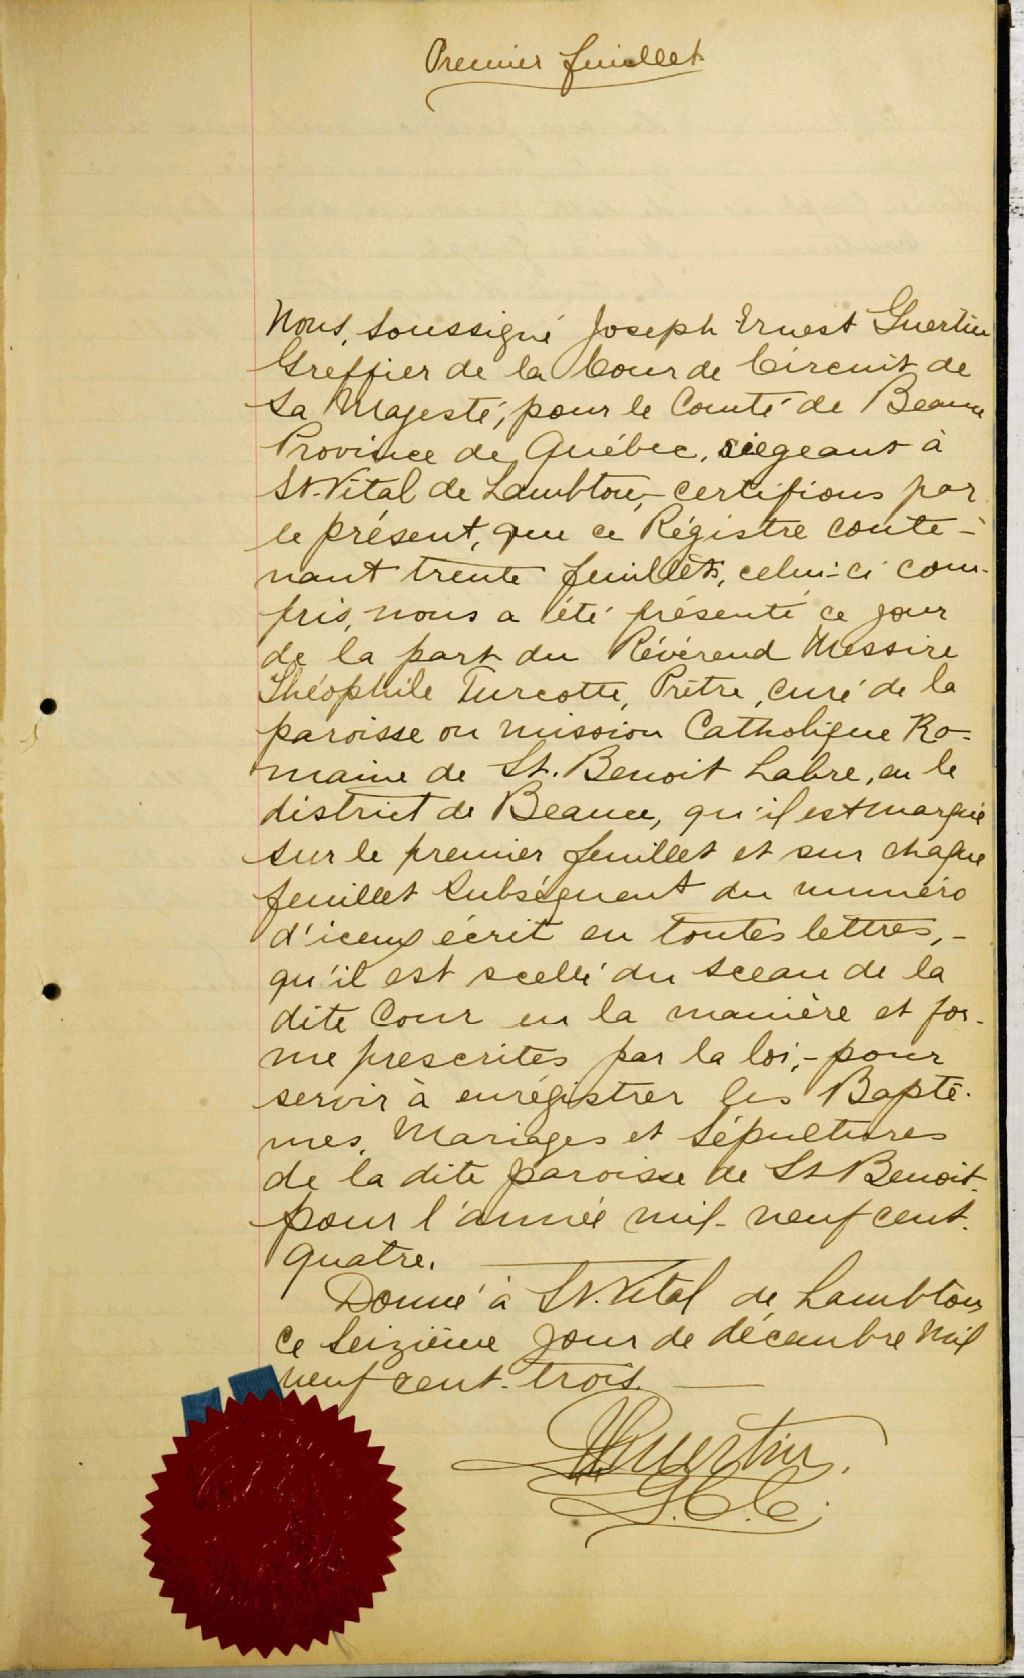 Premier feuillet
Nous, soussigné Joseph Ernest Guertin
Greffier de la Cour de Circuit de
Sa Majesté, pour le Comté de Beauce
Province de Québec, siégeant à
St. Vital de Lambton, - certifions par
le présent, que ce Régistre conte-
nant trente feuillets, celui-ci com-
pris, nous a été présenté ce jour
de la part du Révérend Messire
Théophile Turcotte, Prêtre, curé de la
paroisse ou mission Catholique Ro-
maine de St. Benoit Labre, en le
district de Beauce, qu'il est marqué
sur le premier feuillet et sur chaque
feuillet subséquent du numéro
d'iceux écrit en toutes lettres, -
qu'il est scellé du sceau de la
dite Cour en la manière et for-
me prescrites par la loi; - pour
servir à enrégistrer les Baptê-
mes, Mariages et Sépultures
de la dite paroisse de St Benoit
pour l'année mil- neuf cent-
quatre.
Donné à St. Vital de Lambton
ce Seizième jour de décembre mil
neuf cent- trois.
Guertin.
G.C.C.